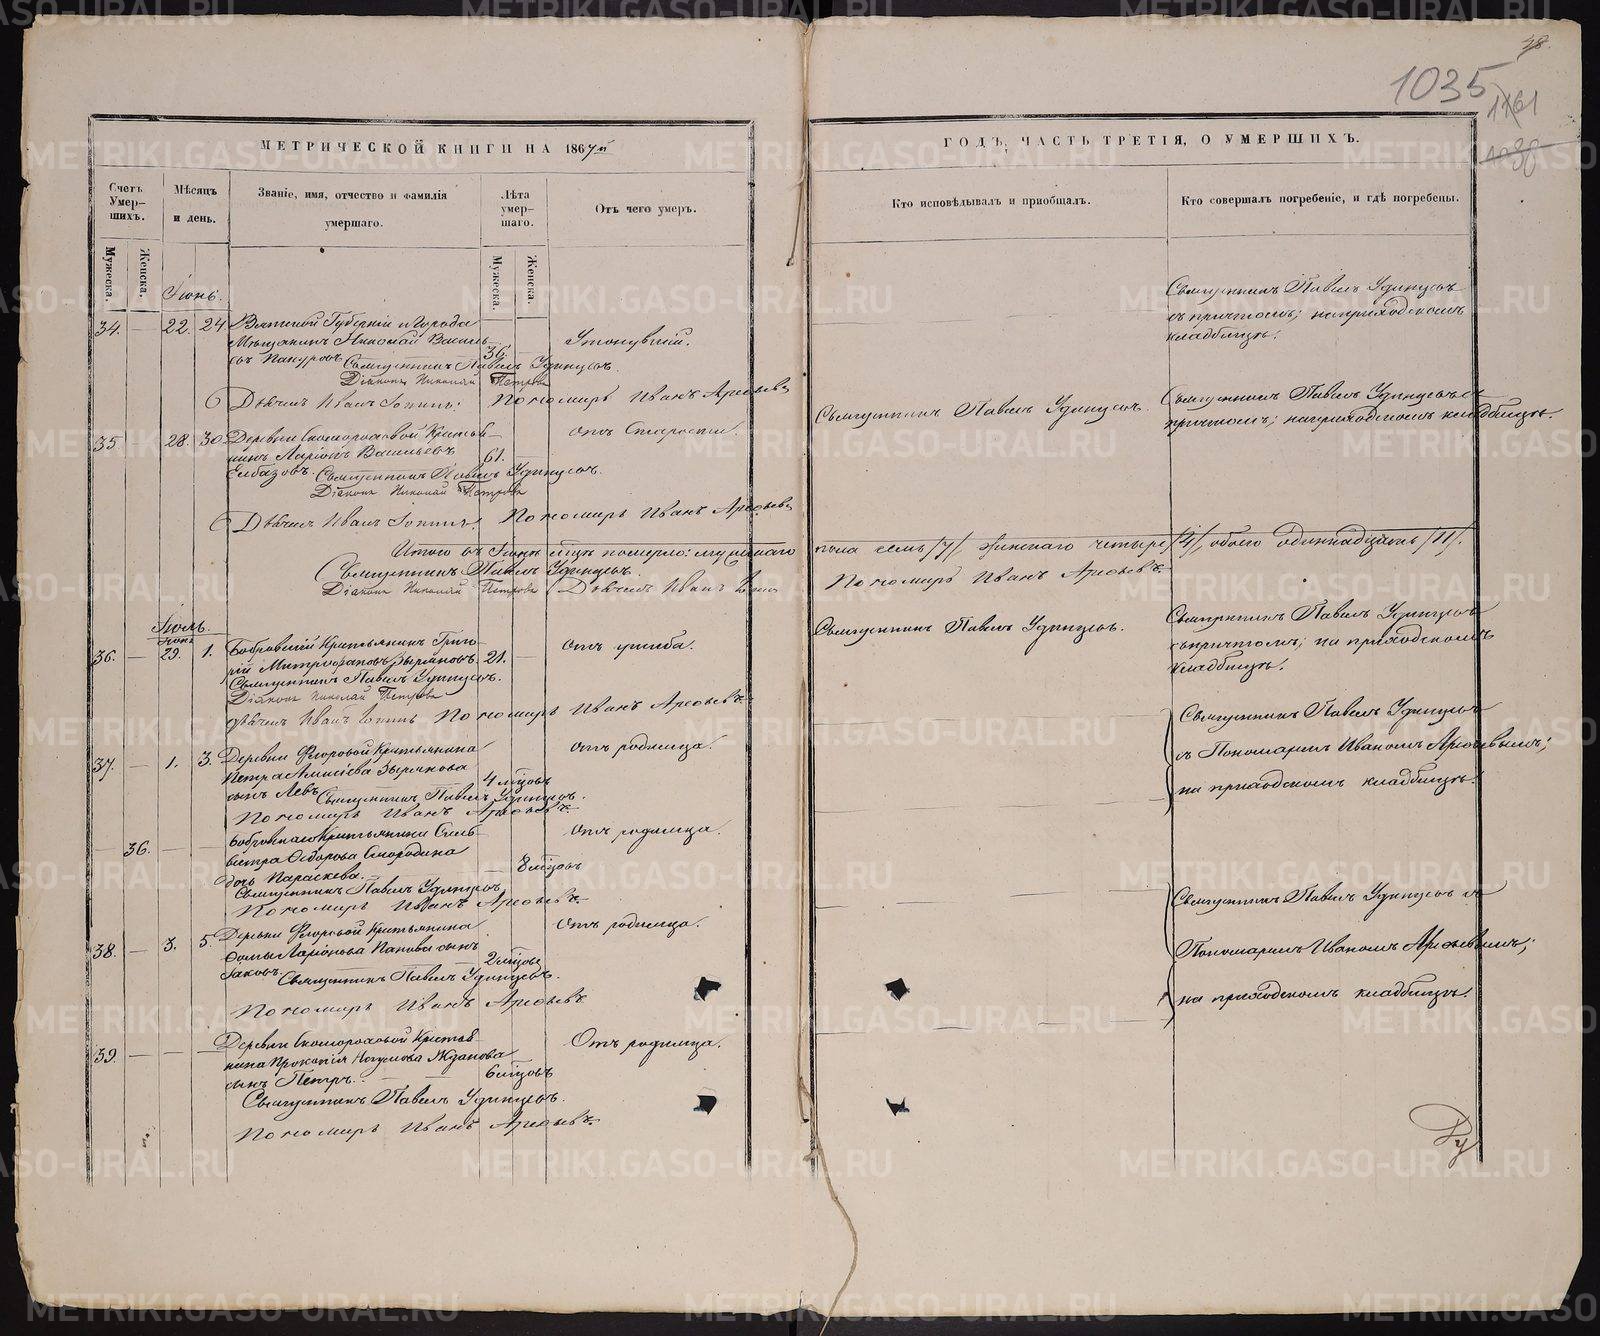 38.
1035
1161
1036
МЕТРИЧЕСКОЙ КНИГИ НА 1867й
ГОДЪ, ЧАСТЬ ТРЕТІЯ, О УМЕРШИХЪ.
Счетъ Умершихъ.
Мѣсяцъ и день.
Званіе, имя, отчество и фамилія умершаго.
Лѣта умершаго.
Отъ чего умеръ.
Кто исповѣдывалъ и пріобщалъ.
Кто совершалъ погребеніе, и гдѣ погребены.
Мужеска.
Женска.
Мужеска.
Женска.
Іюнь.
34. — 22. 24 Вятской Губерніи и Города
Мѣщанинъ Николай Василь-
евъ 36. Утонувшій.
Священникъ Павелъ Удинцовъ
съ причтомъ; на приходскомъ
кладбищѣ.
Священникъ Павелъ Удинцовъ.
Діаконъ Николай Петровъ
Дьячекъ Иванъ Пономарь Иванъ Арефьевъ
35. — 28. 30. Деревни Скоморохової Крестья-
нинъ Ларіонъ Васильевъ 61. — Отъ Старости.
Священникъ Павелъ Удинцовъ.
Священникъ Павелъ Удинцовъ съ
причтомъ; на приходскомъ кладбищѣ.
Священникъ Павелъ Удинцовъ.
Діаконъ Николай Петровъ
Дьячекъ Иванъ Пономарь Иванъ Арефьевъ
Итого въ Іюнѣ м̃цѣ померло: мужескаго пола семь /7/, женскаго четыре /4/, обоего одиннадцать /11/.
Священникъ Павелъ Удинцовъ.
Діаконъ Николай Петровъ Дьячекъ Иванъ
Пономарь Иванъ Арефьевъ
Іюль.
Іюня
36. — 29. 1. Бобровскій Крестьянинъ Григо-
рій Митрофановъ Зыряновъ. 21. — Отъ ушиба.
Священникъ Павелъ Удинцовъ.
Священникъ Павелъ Удинцовъ
съ причтомъ; на приходскомъ
кладбищѣ.
Священникъ Павелъ Удинцовъ.
Діаконъ Николай Петровъ
Дьячекъ Иванъ Пономарь Иванъ Арефьевъ
37. — 1. 3. Деревни Крестьянина
Петра Зырянова
сынъ Левъ 4 мѣсцовъ Отъ родимца.
Священникъ Павелъ Удинцовъ
съ Пономаремъ Иваномъ Арефьевымъ;
на приходскомъ кладбищѣ.
Священникъ Павелъ Удинцовъ.
Пономарь Иванъ Арефьевъ
— 36. — — Бобровскаго Крестьянина Силь-
вестра Ѳедорова Смородина
дочь Параскева. 8 мѣсцовъ Отъ родимца.
Священникъ Павелъ Удинцовъ
Пономарь Иванъ Арефьевъ
38. — 3. 5. Деревни Крестьянина
Ѳомы Ларіонова Панова сынъ
Іаковъ. 2 мѣсцовъ Отъ родимца.
Священникъ Павелъ Удинцовъ съ
Пономаремъ Иваномъ Арефьевымъ;
на приходскомъ кладбищѣ.
Священникъ Павелъ Удинцовъ.
Пономарь Иванъ Арефьевъ
39. — — — Деревни Скомороховой Крестья-
нина Прокопія Наумова Жданова
сынъ Петръ. 6 мѣсцовъ Отъ родимца.
Священникъ Павелъ Удинцовъ.
Пономарь Иванъ Арефьевъ
METRIKI.GASO-URAL.RU